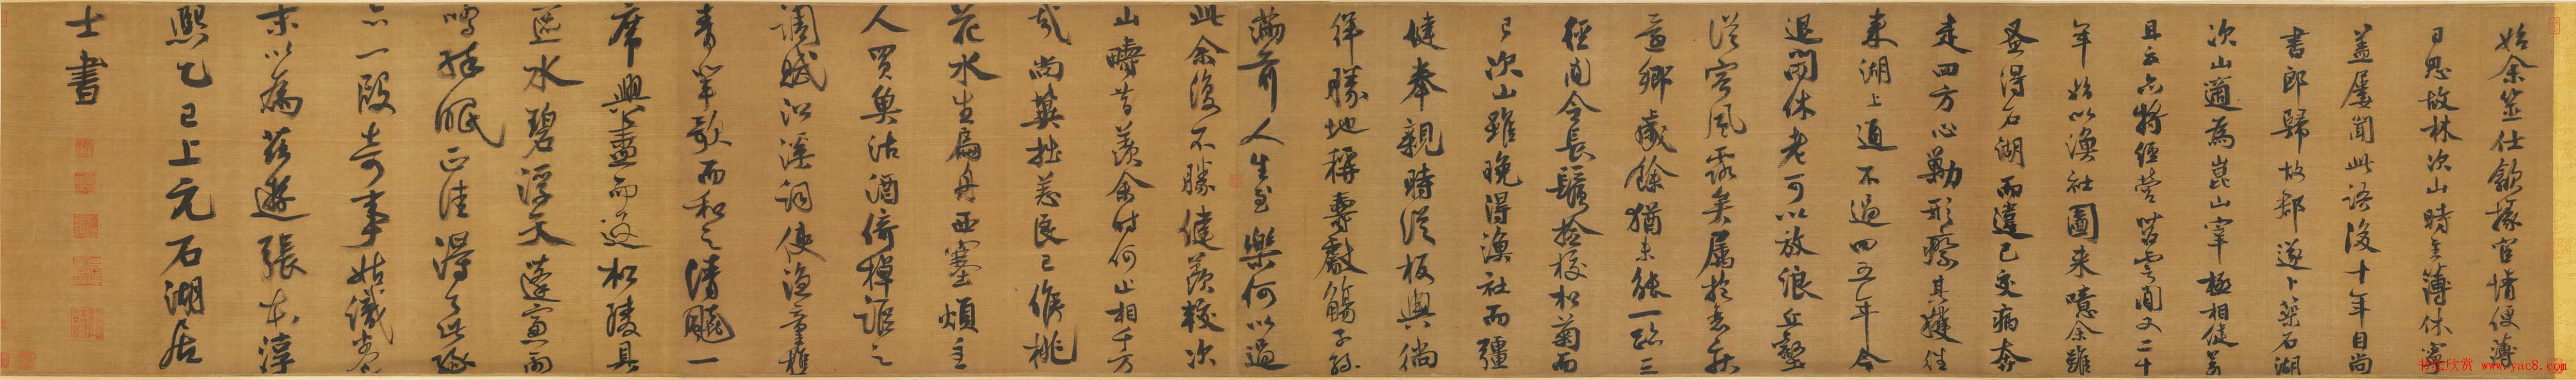 始余筮仕歙掾宦情便薄
日思故林次山時主簿休寧
蓋屢聞此語後十年自尚
書郎歸故郡遂卜築石湖
次山適為崑山宰極相健羨
且云亦將經營苕霅間又二十
年始以漁社圖來噫余雖
蚤得石湖而違己交病奔
走四方心勦形瘵其獲往
來湖上通不過四五年今
退閑休老可以放浪丘壑
從容風露矣屬抱衰疾
還鄉歲餘猶未能一跡三
徑間令長鬚撿校松菊而
已次山雖晚得漁社而彊
健奉親時從板輿徜
徉勝地稱壽獻觴子孫
滿前人生至樂何以過
此余復不勝健羨較次
山疇昔羨余時何止相千万
哉尚冀拙恙良已候桃
花水生扁舟西塞煩主
人買魚沽酒倚棹謳之
調賦沿溪詞使漁童樵
青輩歌而和之清飆一
席興盡而返松陵具
區水碧浮天蓬窗雨
鳴醉眠正佳得了此緣
亦一段奇事姑識卷
末以為茲遊張本淳
熙乙巳上元石湖居
士書
书法欣赏 www.yac8.com